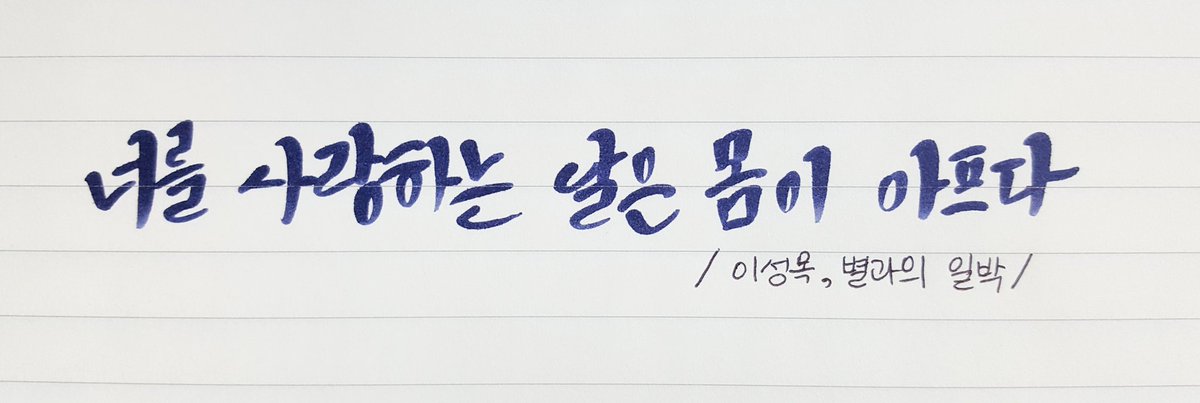 너를 사랑하는 날은 몸이 아프다
/ 이성목, 별과의 일박 /